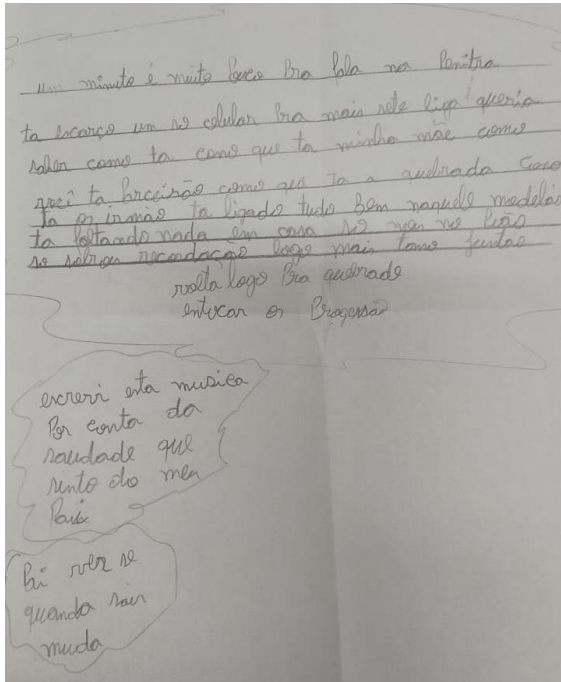 um minuto é muito Pouco Pra fala na Penitra
ta escarço um so celular Pra mais sete liga queria
saber como ta como que ta minha mãe como
voçê ta Parceirão como que ta a quebrada como
ta os irmão ta ligado tudo Bem naquele modelão
ta faltando nada em casa so nois no
so sobrou recordação logo mais tamo juntão
volta logo Pra quebrade
entocar os
escrevi esta musica
Por conta da
saudade que
sinto do meu
Paix
Pai ver se
quando sair
muda